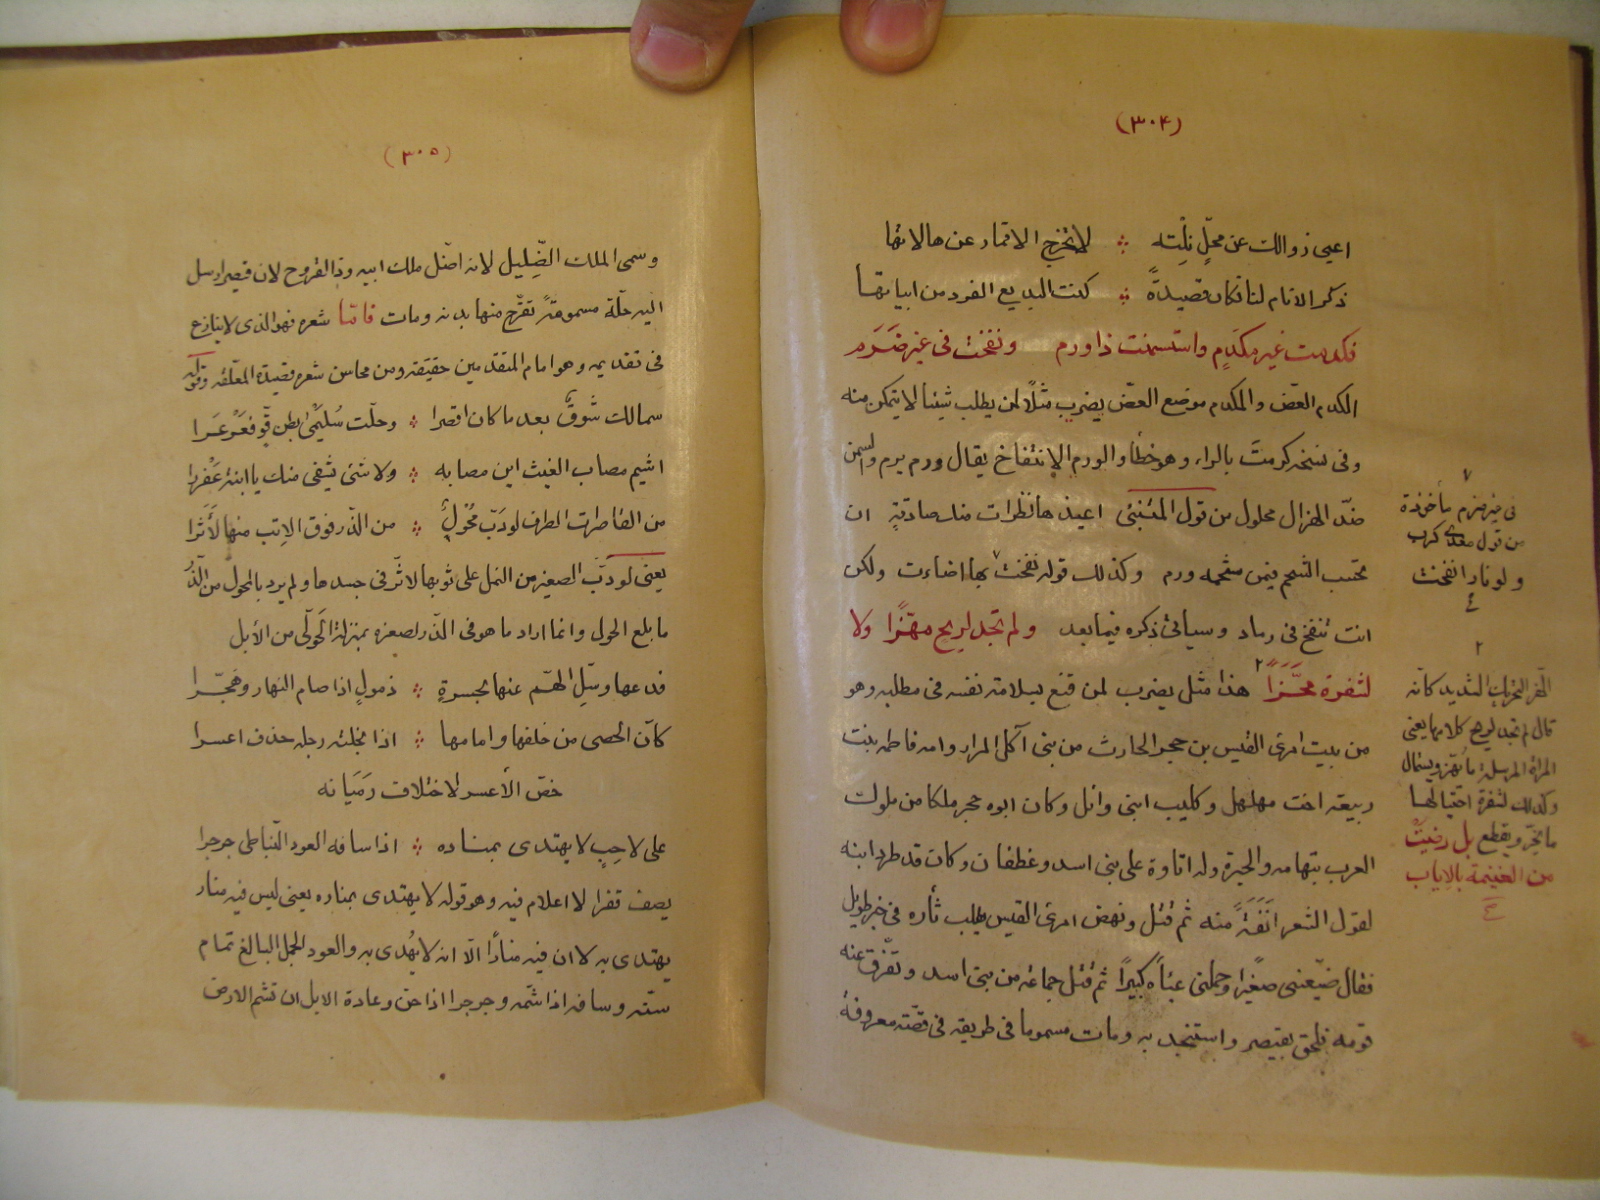 (٣٠٤)
اعيى زوالك عن محلّ نلته ∴ لا تخرج الاقمار عن هالاتها
ذكر الانام لنا فكان قصيدةً ∴ كنت البديع الفرد من ابياتها
فكدمت غير مكدمٍ واستسمنت ذا ورم ونفخت فى غير ضَرَم
الكدم العضّ والمكدم موضع العضّ يضرب مثلًا لمن يطلب شيئا لا يتمكن منه
وفى نسخه كرمت بالراء وهو خطأ والورم الإنتفاخ يقال ورم يرم والسمن
ضدّ الهزال محلول من قول المتنبئى اعيذها نظرات منك صادقةٍ ان
تحسب الشحم فيمن شحمه ورم وكذلك قوله نفخت بها اضاءت ولكن
انت تنفخ فى رماد وسياتى ذكره فيما بعد ولم تجد لريح مهزًّا ولا
لشفرة محَزًّا ٢ هذا مثل يضرب لمن قنع بسلامة نفسه فى مطلبه وهو
من بيت امرئ القيس بن حجر الحارث من بنى آكل المرار وامه فاطمه بنت
ربيعة اخت مهلهل وكليب ابنى وائل وكان ابوه حجر ملكا من ملوك
العرب بتهامه والحيرة وله اتاوة على بنى اسد وغطفان وكان قد طرد ابنه
لقول الشعر انَفَةً منه ثم قتل ونهض امرئ القيس يطلب ثأره فى خبر طويل
فقال ضيّعنى صغيرًا وحملنى عبأه كبيرًا ثم قتل جماعة من بنى اسد وتفرق عنه
قومه فلحق بقيصر واستنجد به ومات مسموما فى طريقه فى قصته معروفة
٧
فى غير ضرم مأخوذة
من قول معدى كرب
ولو نارا نفخت
٢
الهز التحريك الشديد كانّه
قال لم تجد لريح كلامها يعنى
المرأة المرسلة ما يهزّ ويستمال
وكذلك لشفرة احتيالها
ما يحزّ ويقطع بل رضيت
من الغنيمة بالاياب
(٣٠٥)
وسمى الملك الضِّليل لانه اضلّ ملك ابيه وذا القروح لان قيصر ارسل
اليه حلّة مسمومةً تقرّح منها بدنه ومات فامّا شعره فهو الذى لا ينازع
فى تقديمه وهو امام المتقدمين حقيقة ومن محاسن شعره قصيدة المعلقة وقوله
سمالك شوقٌ بعد ما كان اقصرا ∴ وحلّت سُلَيْمى بطن قوٍّ فعَرْعَرا
اشيم مصاب الغيث اين مصابه ∴ ولا شئ يشفى منك يا ابنة عَفْزرا
من القاصرات الطرف لو دَبّ مُحْوِلٌ ∴ من الذّر فوق الاِتب منها لأَثّرا
يعنى لو دبّ الصغير من النمل على ثوبها لاثّر فى جسدها ولم يرد بالمحول من الذّر
ما بلغ الحول وانما اراد ما هو فى الذّر لصغره بمنزلة الحَولّى من الأبل
فدعها وسَلِّ الهمّ عنها بجسرةٍ ∴ ذمولٍ اذا صام النهار وهَجّرا
كأن الحصى من خلفها وامامها ∴ اذا نجلته رجله حذف اعسرا
خصّ الأعسر لاختلاف رَمَيَانه
على لاحِبٍ لا يهتدى بمناره ∴ اذا سافه العود النّباطى جرجرا
يصف قفرا لا اعلام فيه وهو قوله لا يهتدى بمناره يعنى ليس فيه منار
يهتدى به لا ان فيه منارًا الّا انه لا يُهدى به والعود الجمل البالغ تمام
سنّه وسافه اذا شمّه وجرجرا اذا حنّ وعادة الابل ان تشم الارض